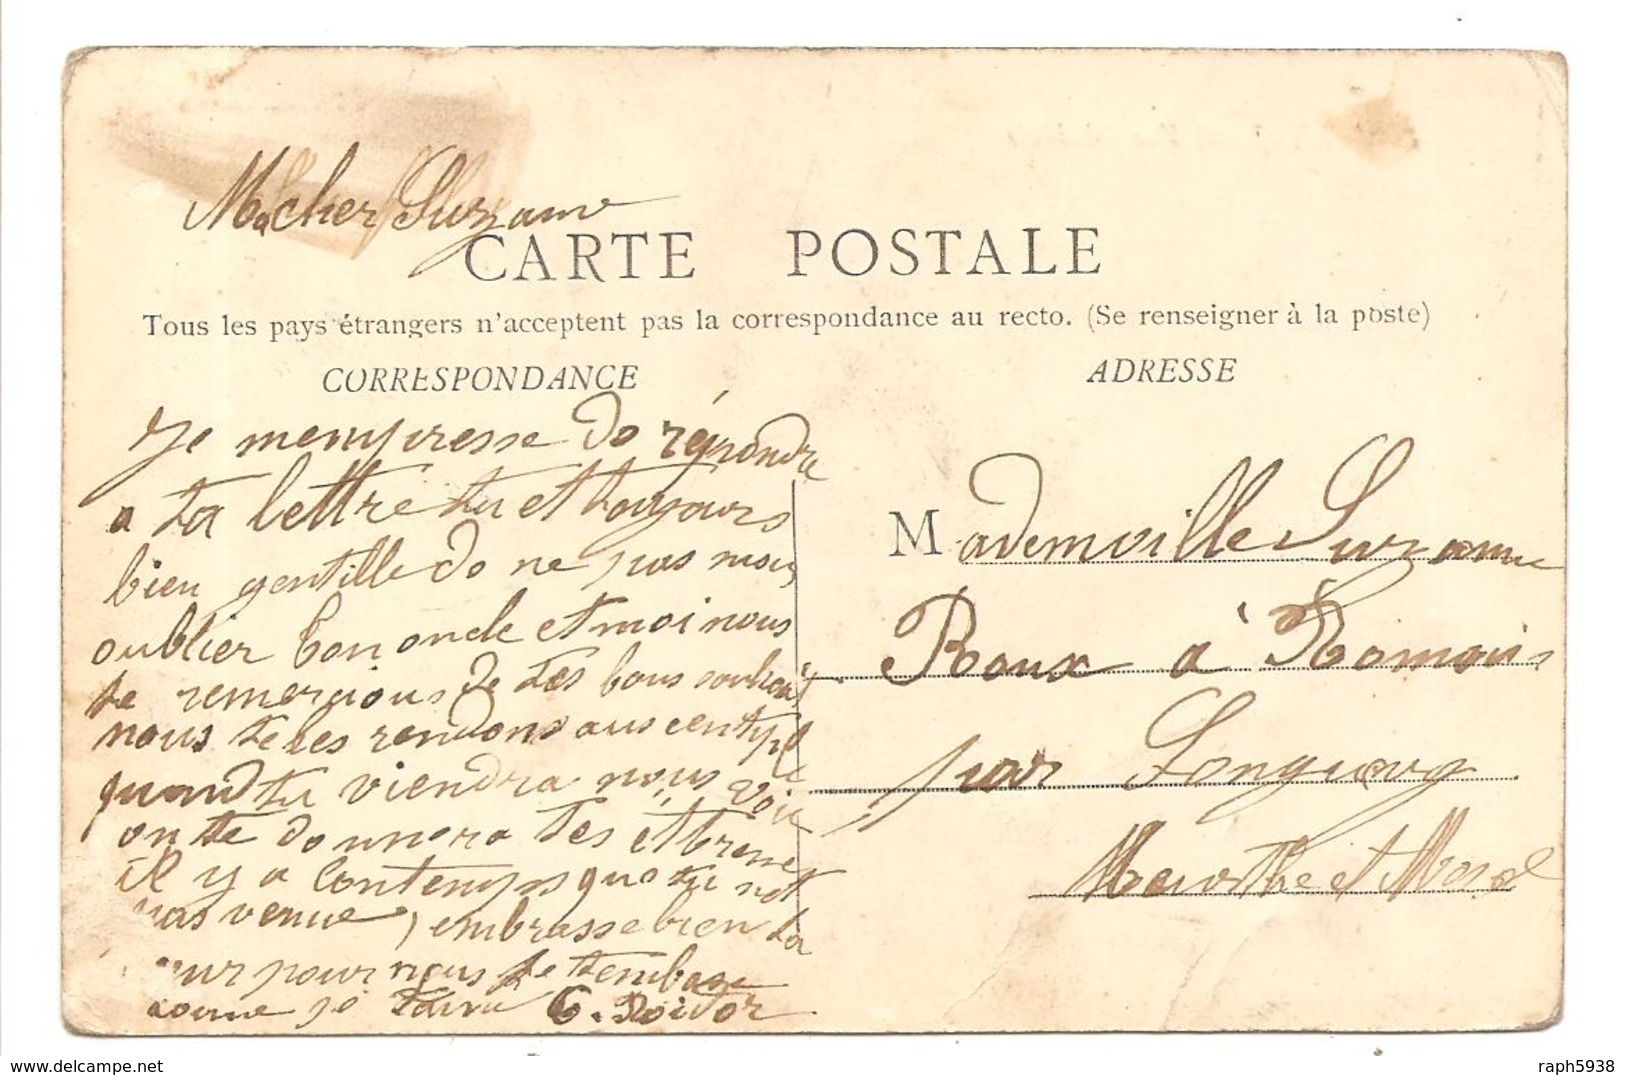 Ma cher Suzanne
CARTE POSTALE
Tous les pays étrangers n'acceptent pas la correspondance au recto. (Se renseigner à la poste)
CORRESPONDANCE
Je mempresse de répondre
a ta lettre tu et toujours
bien gentille de ne pas nous
oublier ton oncle et moi nous
te remercions de tes bons souhait
nous te les rendons aus centuple
quand tu viendra nous voir
on te donnera tes etrenne
il y a lontemps que tu net
pas venue, embrasse bien ta
pour nous je tembrasse
comme je taime E. Roidor
ADRESSE
Mademoiselle Suzanne
Roux à Romain
par Longuwy
Meurthe et Mosel
raph5938